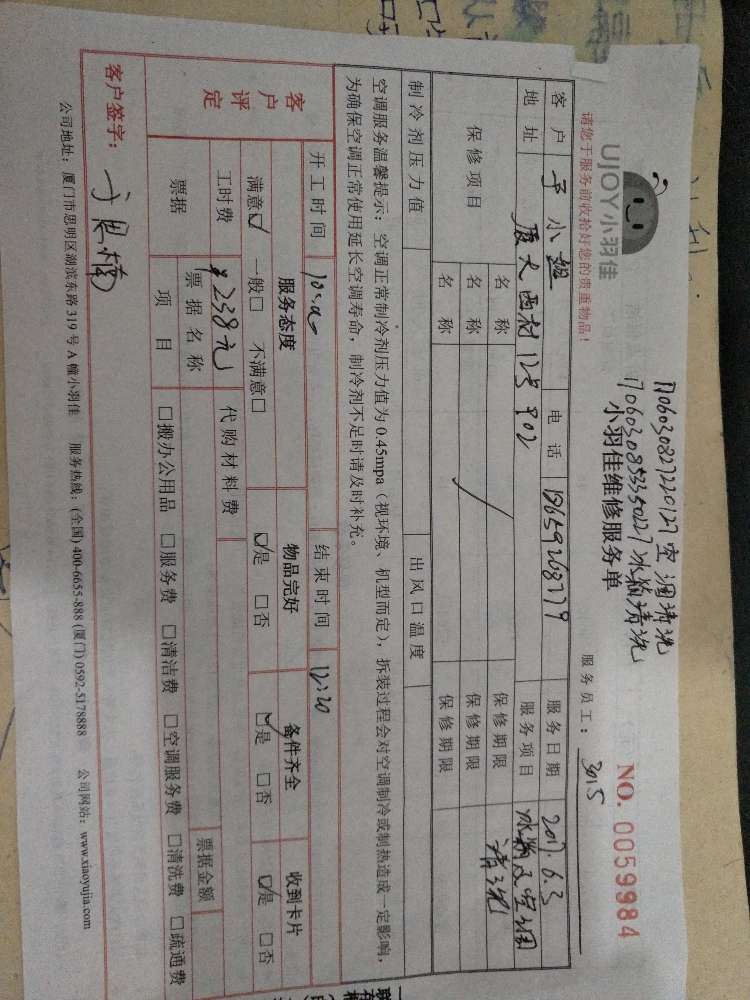 UJOY小羽佳
17060308272220127 空调清洗
17060308535350227 冰箱清洗
小羽佳维修服务单
NO. 0059984
请您于服务前收拾好您的贵重物品!
服务员工: 3015
客户 小姐 电话 服务日期 2017.6.3
地址 厦大西村 902 服务项目 冰箱及空调清洗
保修项目 名称 保修期限
名称 保修期限
名称 保修期限
制冷剂压力值 出风口温度
空调服务温馨提示:空调正常制冷剂压力值为0.45mpa(视环境、机型而定),拆装过程会对空调制冷或制热造成一定影响,
为确保空调正常使用延长空调寿命,制冷剂不足时请及时补充。
开工时间 结束时间 12:20
客户评定 服务态度 物品完好 备件齐全 收到卡片
满意☑ 一般□ 不满意□ ☑是 □否 ☑是 □否 ☑是 □否
工时费 ¥238元 代购材料费
票据 票据名称 票据金额
项目 □搬办公用品 □服务费 □清洁费 □空调服务费 □清洗费 □疏通费
客户签字:
公司地址:厦门市思明区湖滨东路319号A幢小羽佳 服务热线:(全国)400-6655-888 (厦门)0592-5178888 公司网站:www.xiaoyujia.com